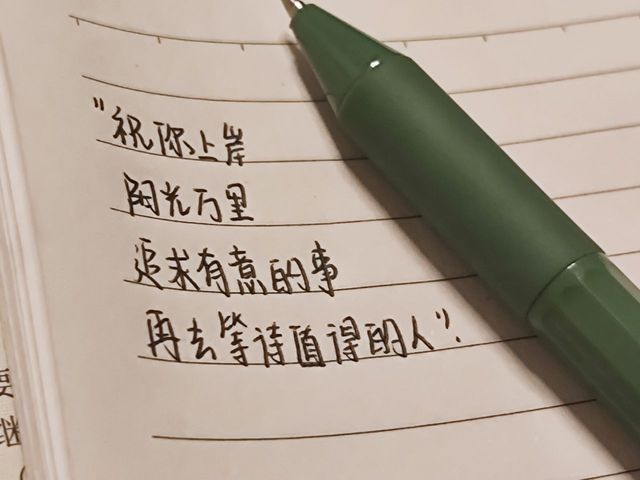 "祝你上岸
阳光万里
追求有意的事
再去等待值得的人".
要
继